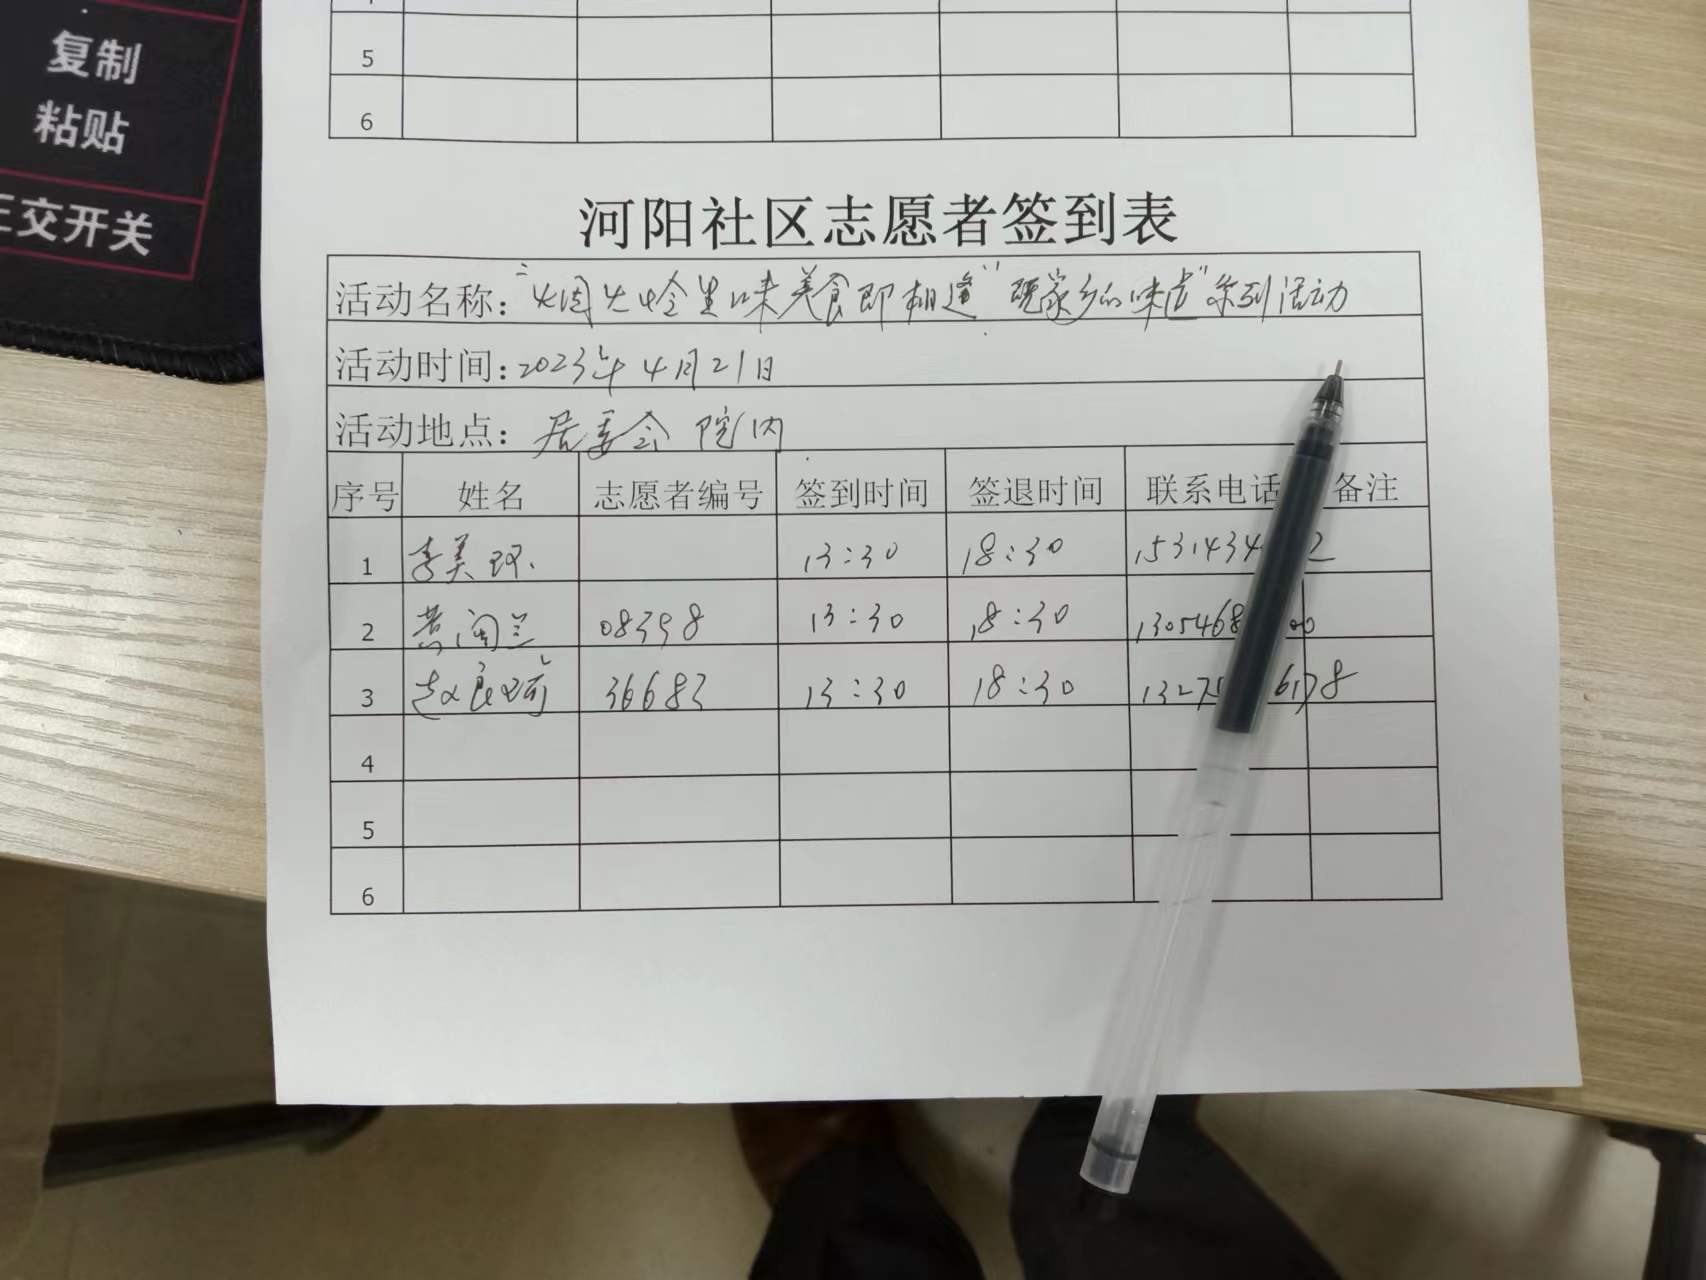 复制
粘贴
交开关
5
6
河阳社区志愿者签到表
活动名称："烟火岭里味美食即相逢""玩家乡的味道"系列活动
活动时间：2023年4月21日
活动地点：居委会 院内
序号 姓名 志愿者编号 签到时间 签退时间 联系电话 备注
1 李美环 13:30 18:30 1531434 2
2 兰 08398 13:30 18:30 1305468 00
3 赵良瑜 36683 13:30 18:30 1327 6178
4
5
6